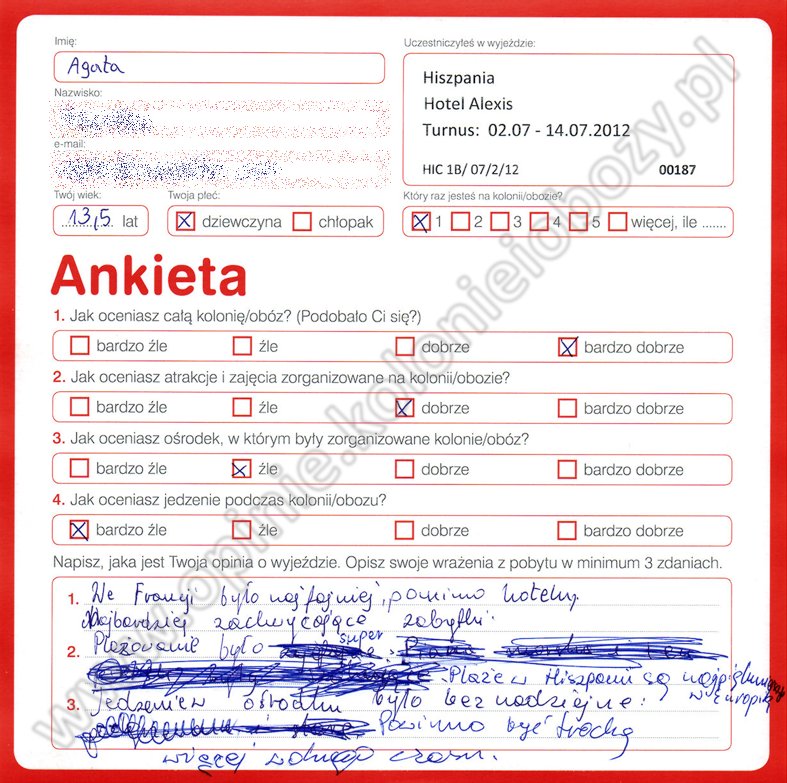 Imię:
Agata
Uczestniczyłeś w wyjeździe:
Hiszpania
Hotel Alexis
Turnus: 02.07 - 14.07.2012
HIC 1B/ 07/2/12 00187
Nazwisko:
e-mail:
Twój wiek:
13,5 lat
Twoja płeć:
dziewczyna chłopak
Który raz jesteś na kolonii/obozie?
1 2 3 4 5 więcej, ile .......
Ankieta
1. Jak oceniasz całą kolonię/obóz? (Podobało Ci się?)
bardzo źle źle dobrze bardzo dobrze
2. Jak oceniasz atrakcje i zajęcia zorganizowane na kolonii/obozie?
bardzo źle źle dobrze bardzo dobrze
3. Jak oceniasz ośrodek, w którym były zorganizowane kolonie/obóz?
bardzo źle źle dobrze bardzo dobrze
4. Jak oceniasz jedzenie podczas kolonii/obozu?
bardzo źle źle dobrze bardzo dobrze
Napisz, jaka jest Twoja opinia o wyjeździe. Opisz swoje wrażenia z pobytu w minimum 3 zdaniach.
1. We Francji było najfajniej, pomimo hotelu.
Najbardziej zachwycające zabytki.
2. Plażowanie było super
Plaże w Hiszpanii są najpiękniejsze
w Europie
3. Jedzenie w ośrodku było beznadziejne!
Powinno być trochę
więcej wolnego czasu.
www.opinie.kolonieiobozy.pl